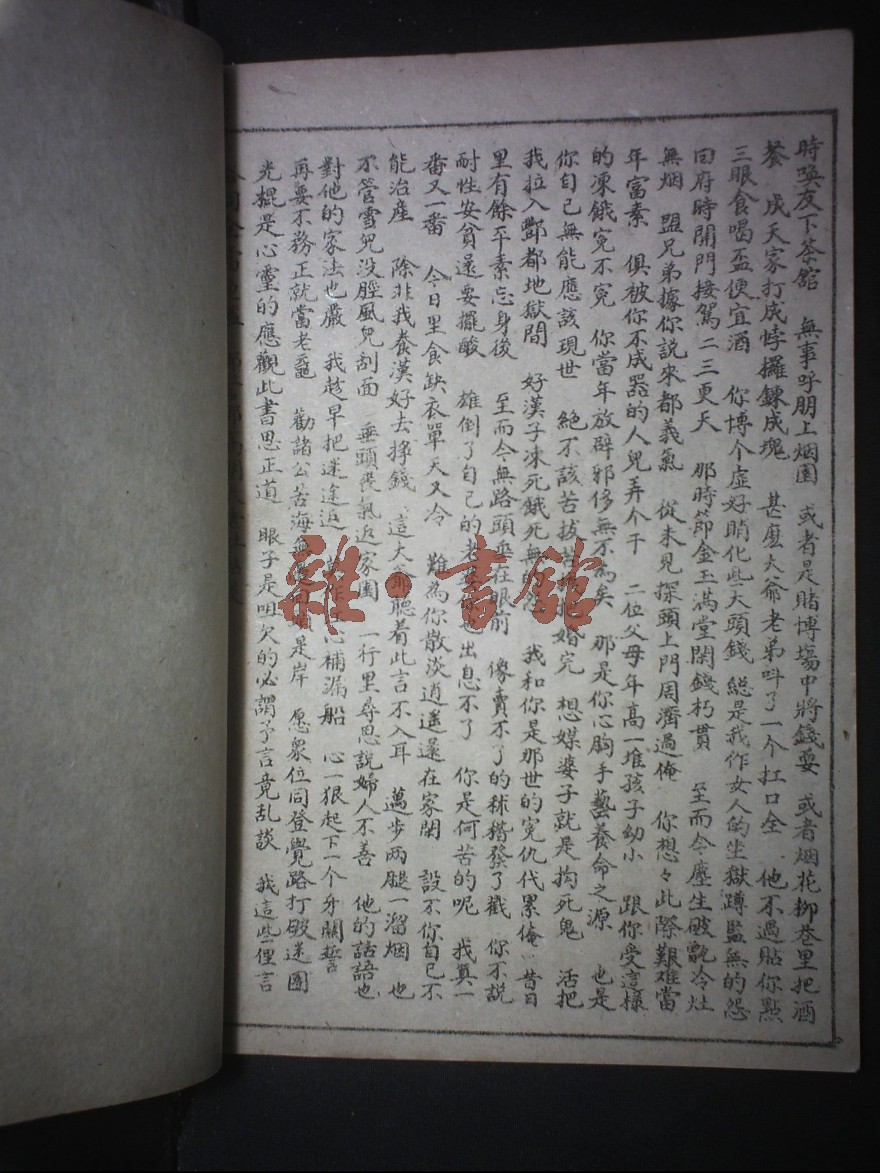 時喚友下茶舘 無事呼朋上烟園 或者是賭博塲中將錢耍 或者烟花柳巷里把酒
餐 成天家打成悖攞鍊成塊 甚麽大爺老弟呌了一个扛口全 他不過貼你點
三眼食喝盃便宜酒 你博个虛好眧化些大頭錢 総是我作女人的坐獄蹲監無的怨
囘府時開門接駕二三更天 那時節金玉满堂閑錢朽貫 至而今塵生破甑冷灶
無烟 盟兄弟據你說來都義氣 從未見探頭上門周濟過俺 你想々此際艱难當
年富素 俱被你不成器的人兒弄个干 二位父母年髙一堆孩子幼小 跟你受這樣
的凍餓寃不寃 你當年放辟邪侈無不為矣 那是你心胸手藝養命之源 也是
你自己無能應該現世 絶不該苦拔苦 把婚完 想媒婆子就是抅死鬼 活把
我拉入酆都地獄間 好漢子凍死餓死無 我和你是那世的寃仇代累俺 昔日
里有餘平素忘身後 至而今無路頭 在眼前 像賣不了的秫稭發了戳 你不說
耐性安貧還要擺酸 雄倒了自己的老 你也出息不了 你是何苦的呢 我奠一
番又一番 今日里食缺衣單天又冷 難為你散淡逍遥還在家閑 設不你自己不
能治產 除非我養漢好去掙錢 這大爺聽着此言不入耳 邁步两腿一溜烟 也
不管雪兒没脛風兒刮面 垂頭喪氣返家園 一行里尋思說婦人不善 他的話語也
對他的家法也嚴 我趁早把迷途返 心補漏船 心一狠起下一个牙關誓
再要不務正就當老黿 勸諸公苦海無 是岸 愿衆位同登覺路打破迷團
光棍是心靈的應觀此書思正道 眼子是咀欠的必謂予言竟乱談 我這些俚言
雜·書舘